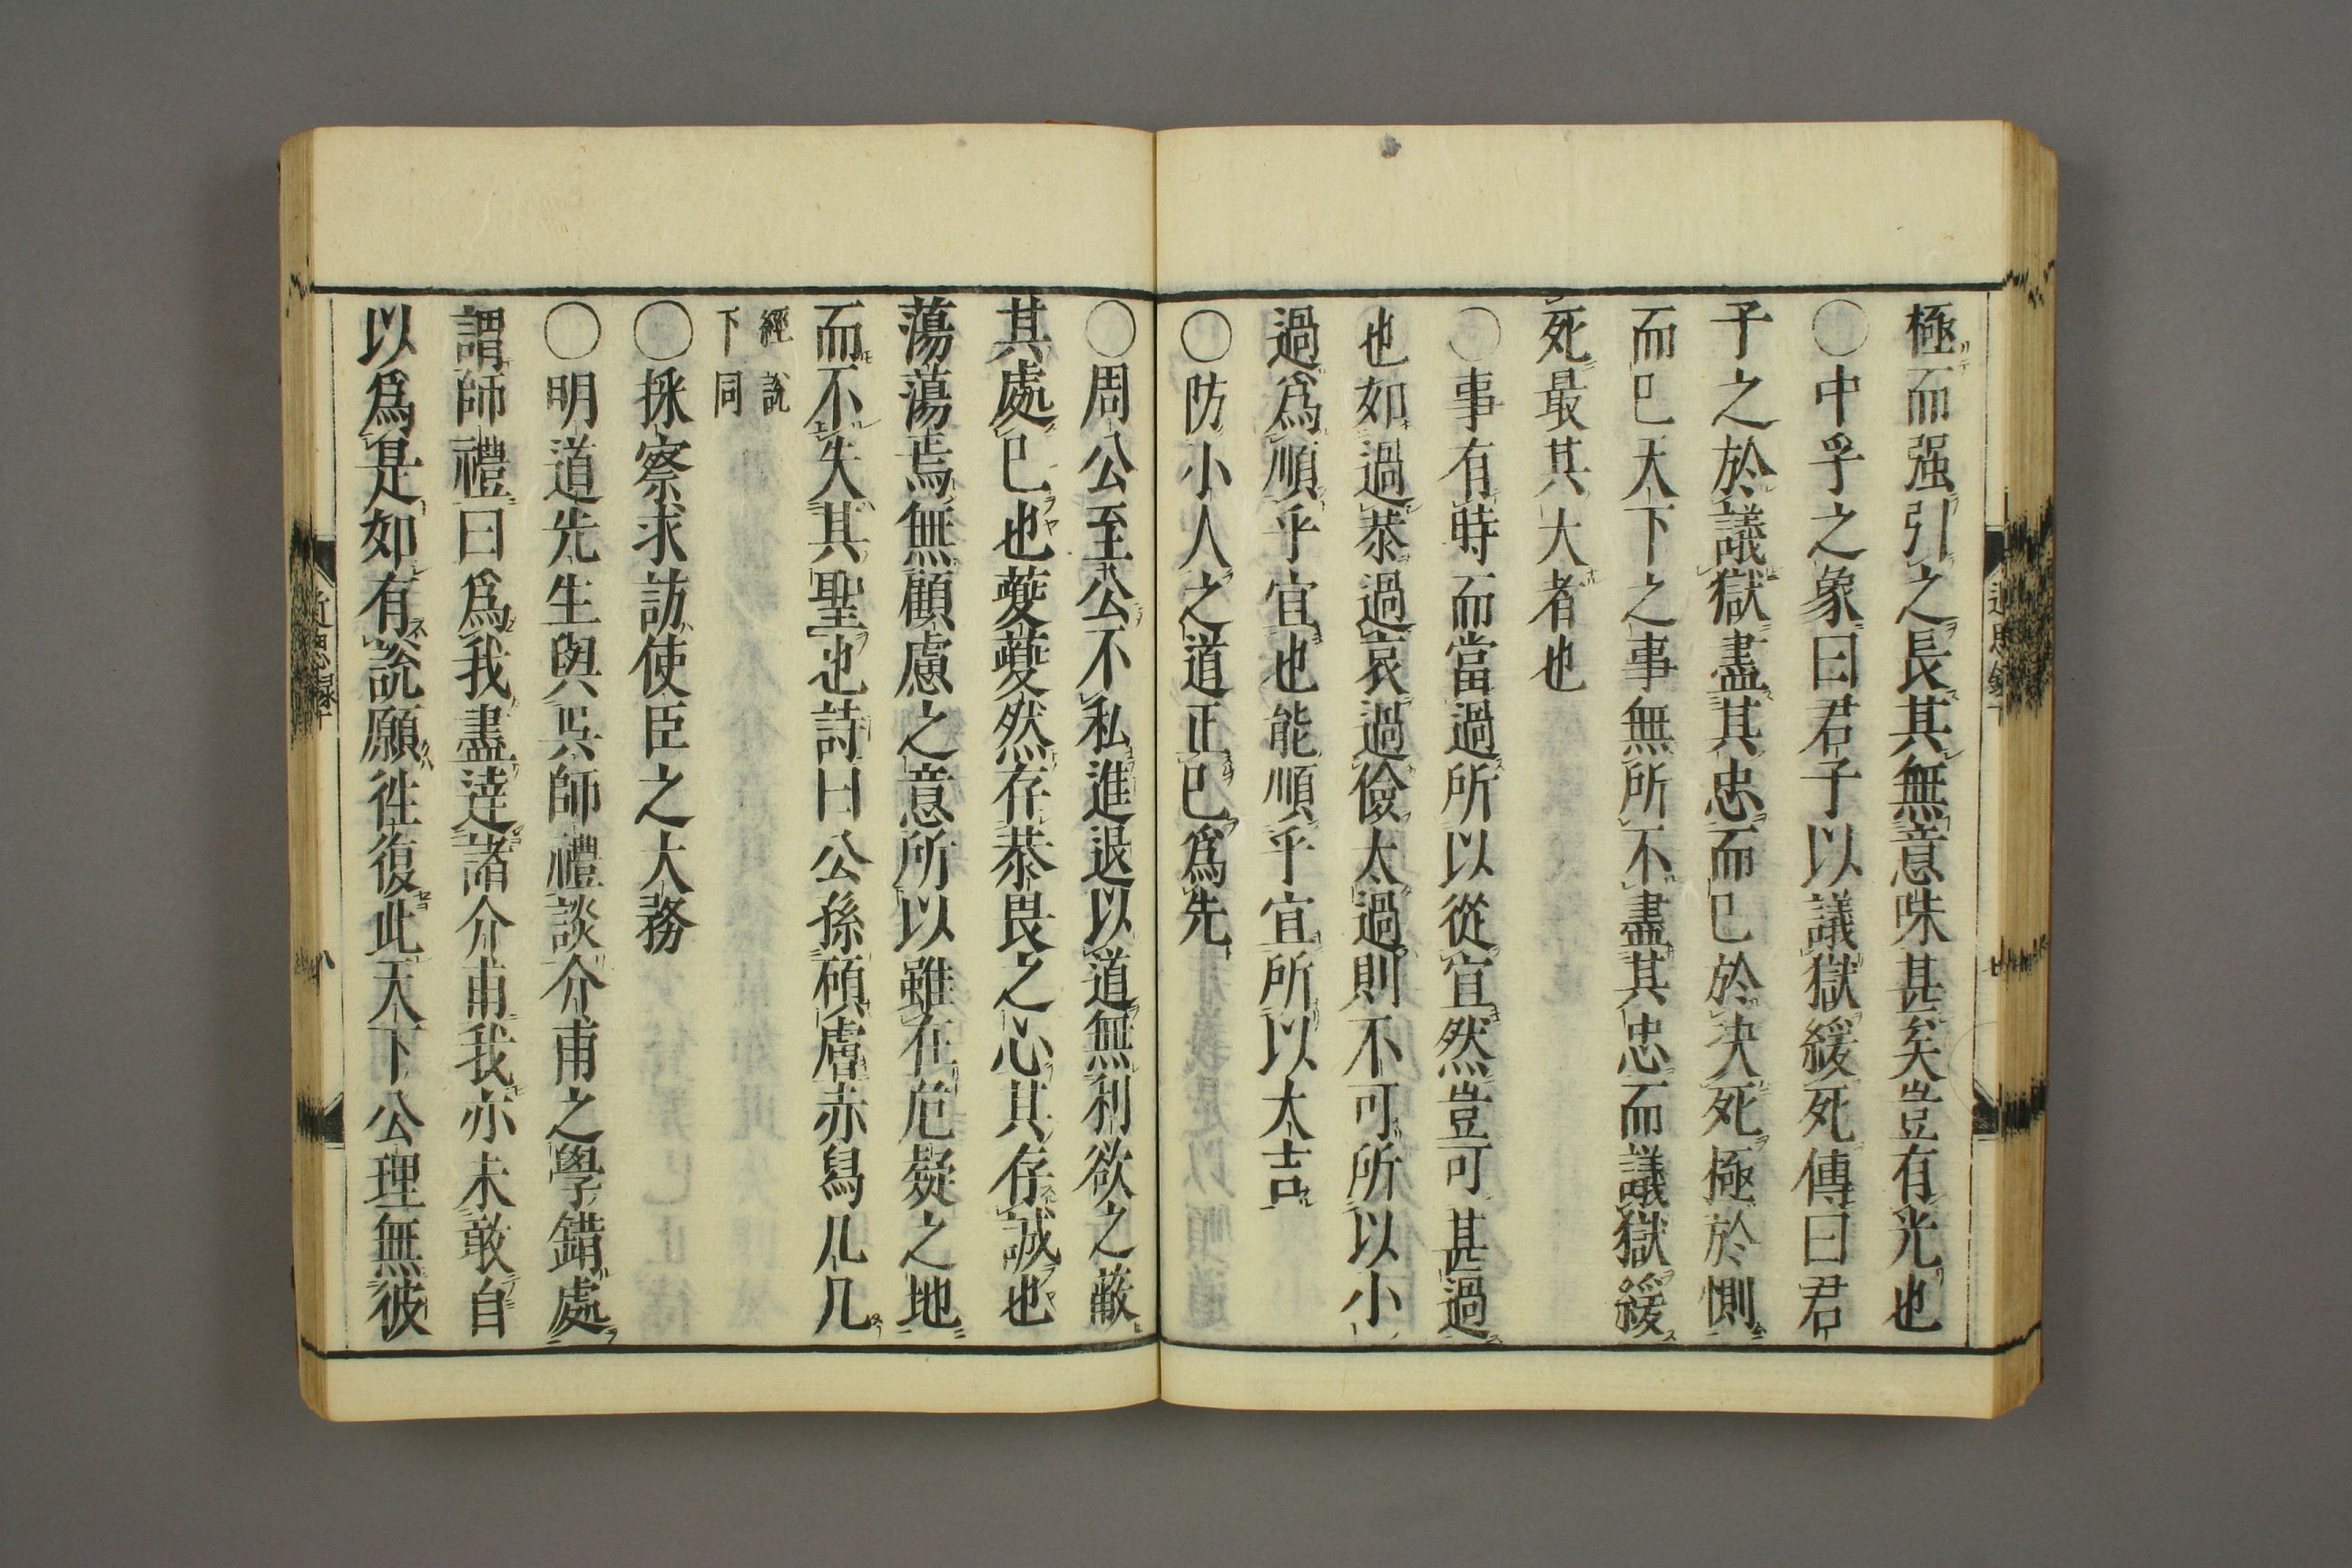 極而强引之長其無意味甚矣豈有光也
○中孚之象曰君子以議獄緩死傳曰君
子之於議獄盡其忠而已於決死極於惻
而已天下之事無所不盡其忠而議獄緩
死最其大者也
○事有時而當過所以從宜然豈可甚過
也如過恭過哀過儉大過則不可所以小
過爲順乎宜也能順乎宜所以大吉
○防小人之道正己爲先
○周公至公不私進退以道無利欲之蔽
其處己也夔夔然存恭畏之心其存誠也
蕩蕩焉無顧慮之意所以雖在危疑之地
而不失其聖也詩曰公孫碩膚赤舄几几
經說
下同
○採察求訪使臣之大務
○明道先生與吳師禮談介甫之學錯處
謂師禮曰爲我盡逹諸介甫我亦未敢自
以爲是如有說願徃復此天下公理無彼
近思録
八